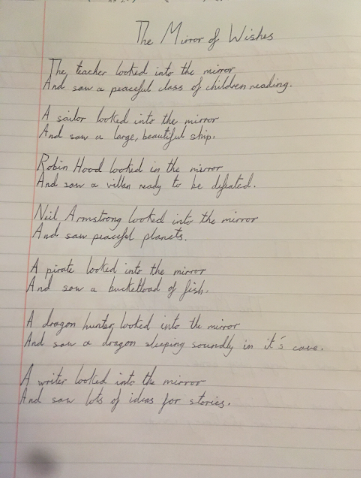 The Mirror of Wishes
The teacher looked into the mirror
And saw a peaceful class of children reading.
A sailor looked into the mirror
And saw a large, beautiful ship.
Robin Hood looked in the mirror
And saw a villen ready to be defeated.
Neil Armstrong looked into the mirror
And saw peaceful planets.
A pirate looked into the mirror
And saw a bucketload of fish.
A dragon hunter looked into the mirror
And saw a dragon sleeping soundly in it's cave.
A writer looked into the mirror
And saw lots of ideas for stories.